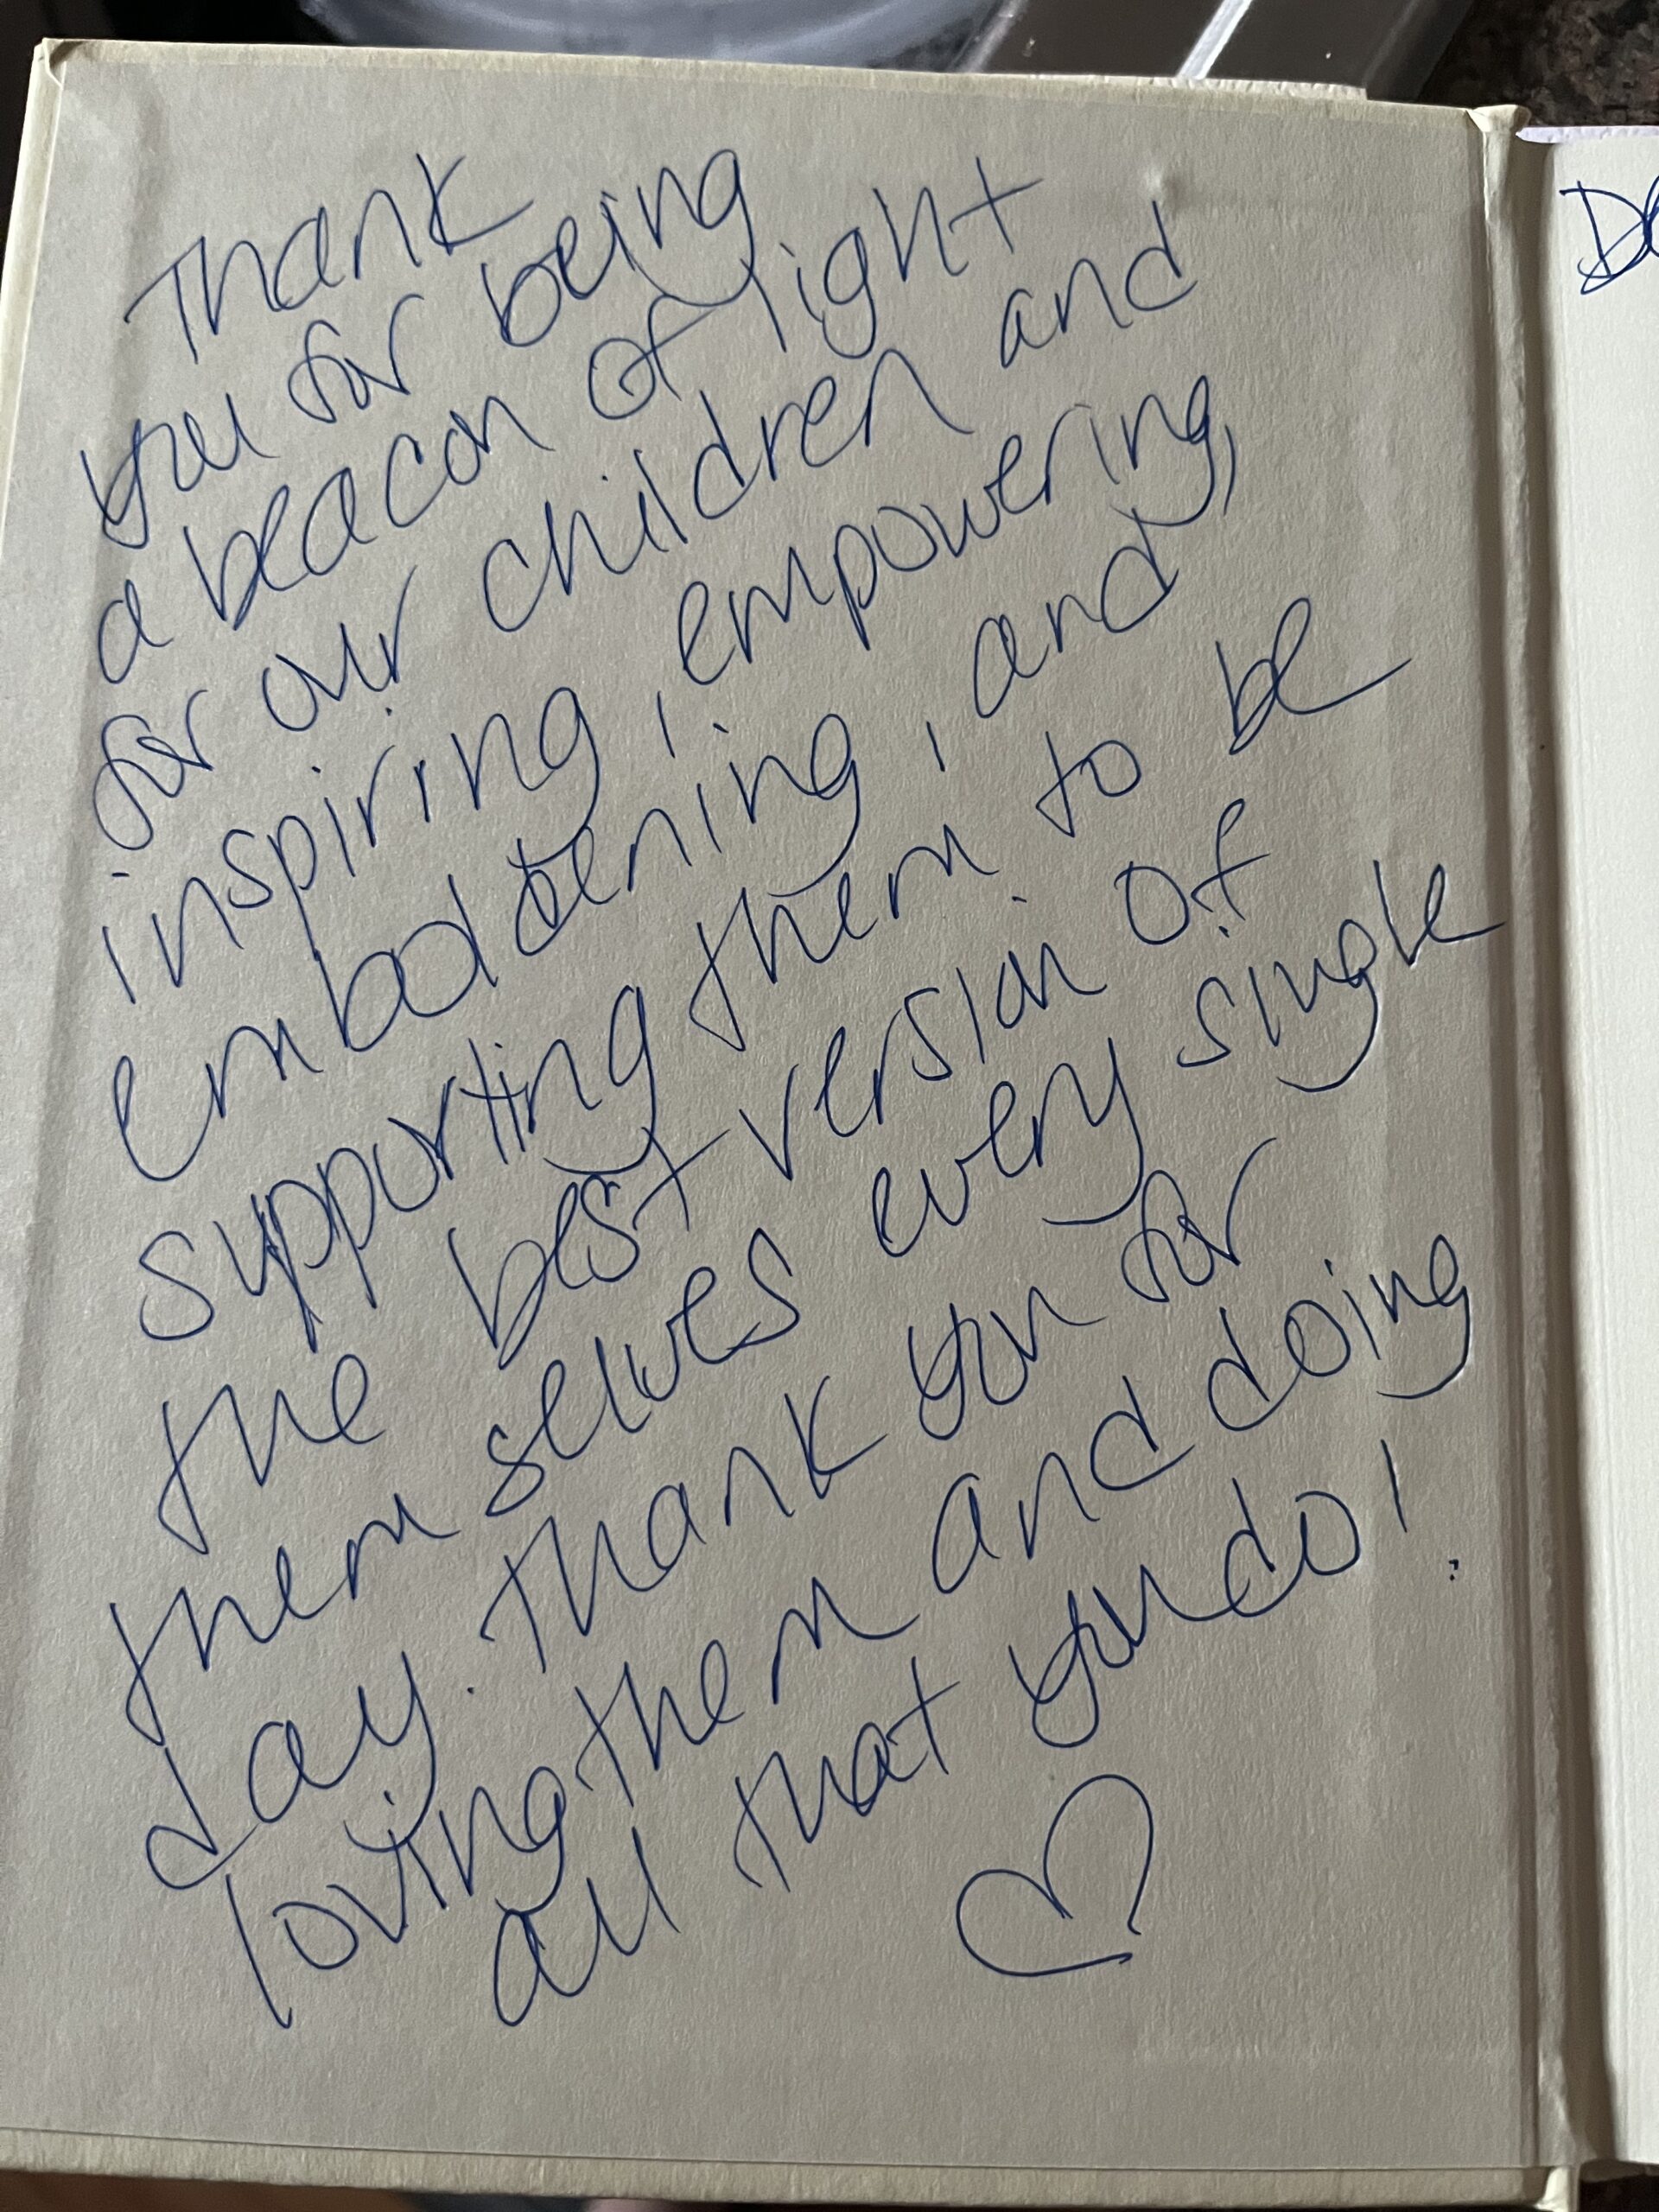 Thank
you for being
a beacon of light
for our children and
inspiring, empowering,
emboldening, and
supporting them to be
the best version of
themselves every single
day. Thank you for
loving them and doing
all that you do!